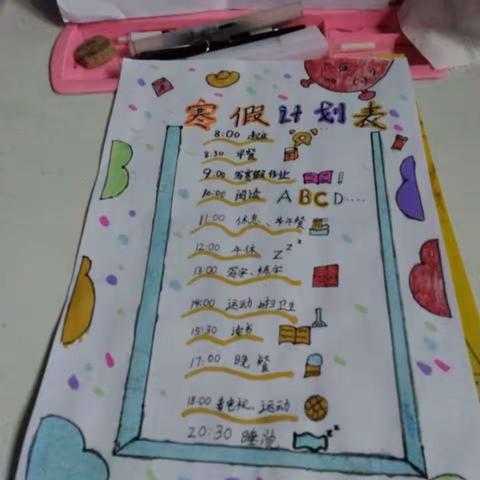 寒假计划表
8:00 起床
8:30 早餐
9:00 写寒假作业
10:00 阅读 ABCD....
11:00 休息、吃午餐
12:00 午休 zzz
13:00 写字、练字
14:00 运动 打扫卫生
15:30 读书
17:00 晚餐
18:00 看电视、运动
20:30 睡觉 zz